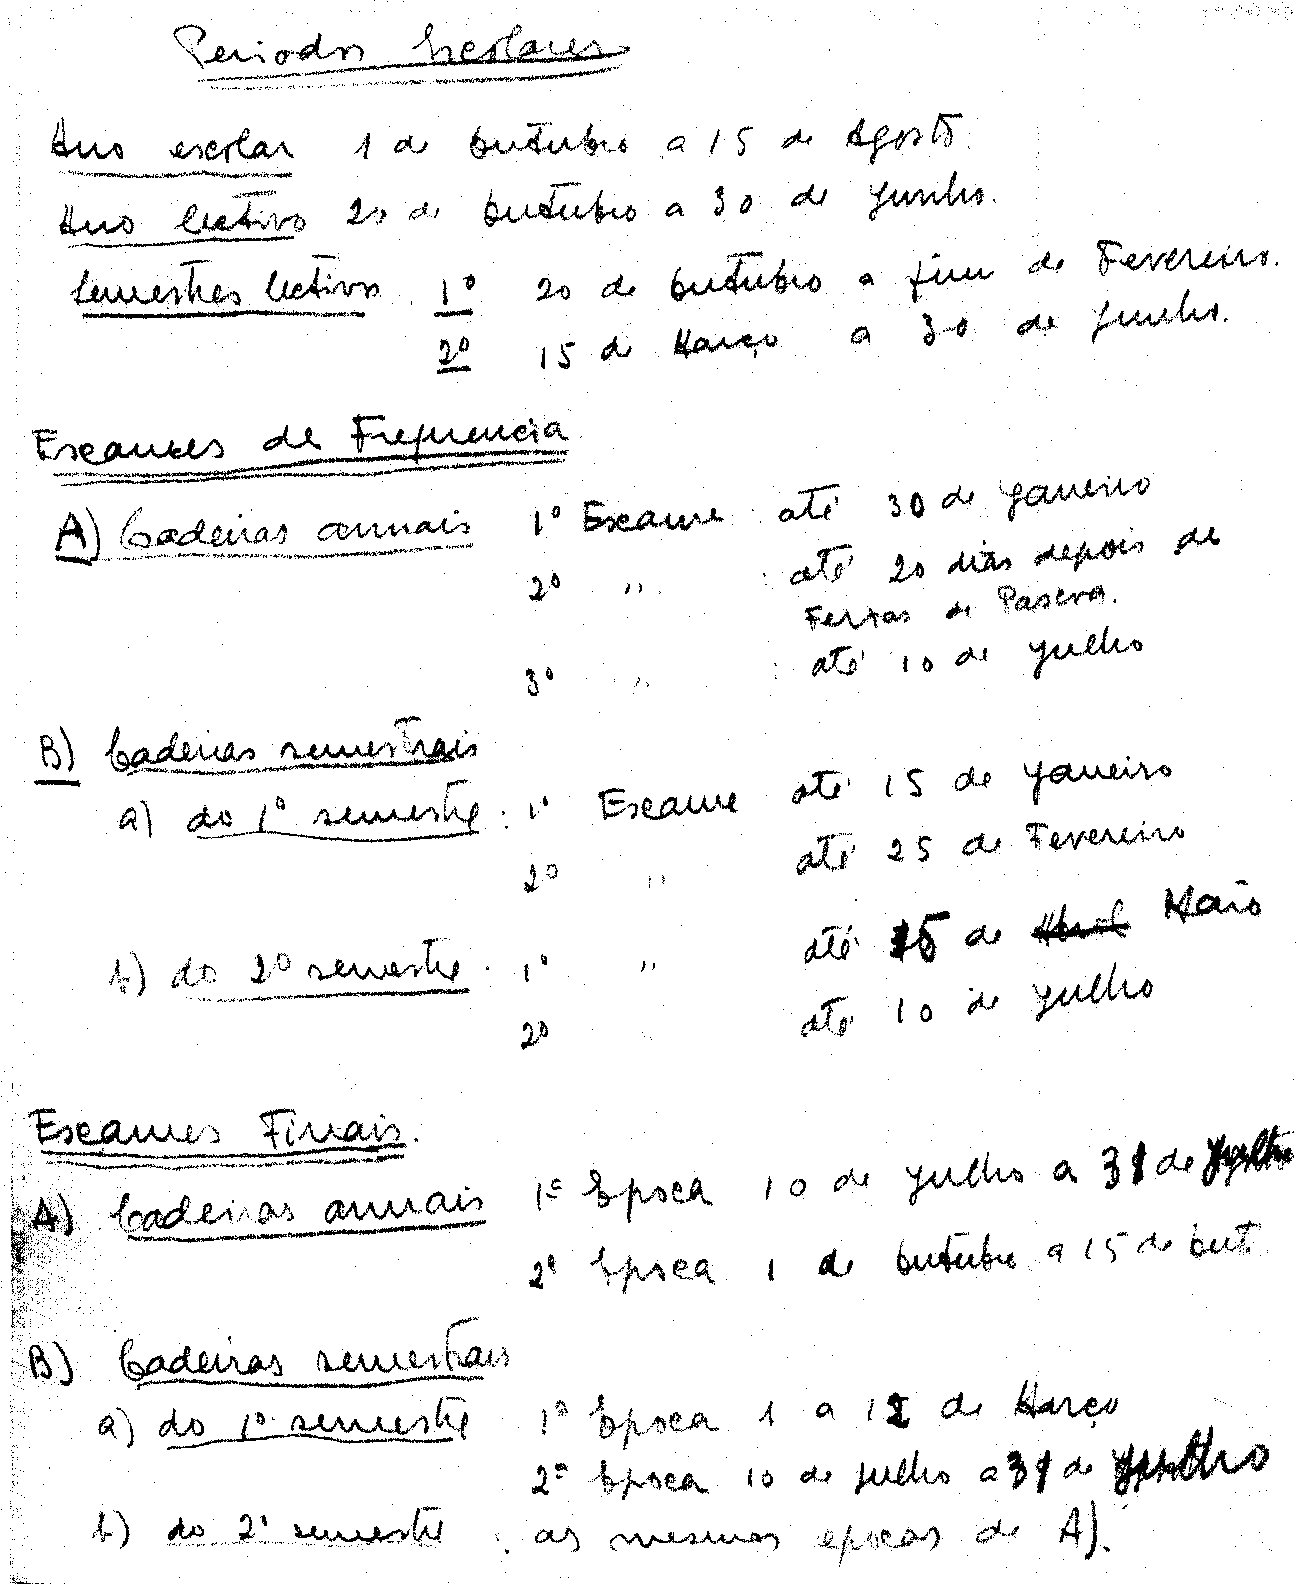 Periodos Escolares
Ano escolar 1 de Outubro a 15 de Agosto
Ano lectivo 20 de Outubro a 30 de Junho.
Semestres lectivos 1º 20 de Outubro a fim de Fevereiro.
2º 15 de Março a 30 de Junho.
Exames de Frequencia
A) Cadeiras anuais 1º Exame até 30 de Janeiro
2º " até 20 dias depois de
Ferias de Pascoa.
3º " até 10 de Julho
B) Cadeiras semestrais
a) do 1º semestre: 1º Exame até 15 de Janeiro
2º " até 25 de Fevereiro
b) do 2º semestre. 1º " até 15 de Abril Maio
2º até 10 de Julho
Exames Finais.
A) Cadeiras anuais 1ª Epoca 10 de Julho a 31 de Julho
2ª Epoca 1 de Outubro a 15 de Out
B) Cadeiras semestrais
a) do 1º semestre 1ª Epoca 1 a 12 de Março
2ª Epoca 10 de Julho a 31 de Julho
b) do 2º semestre: as mesmas epocas de A).